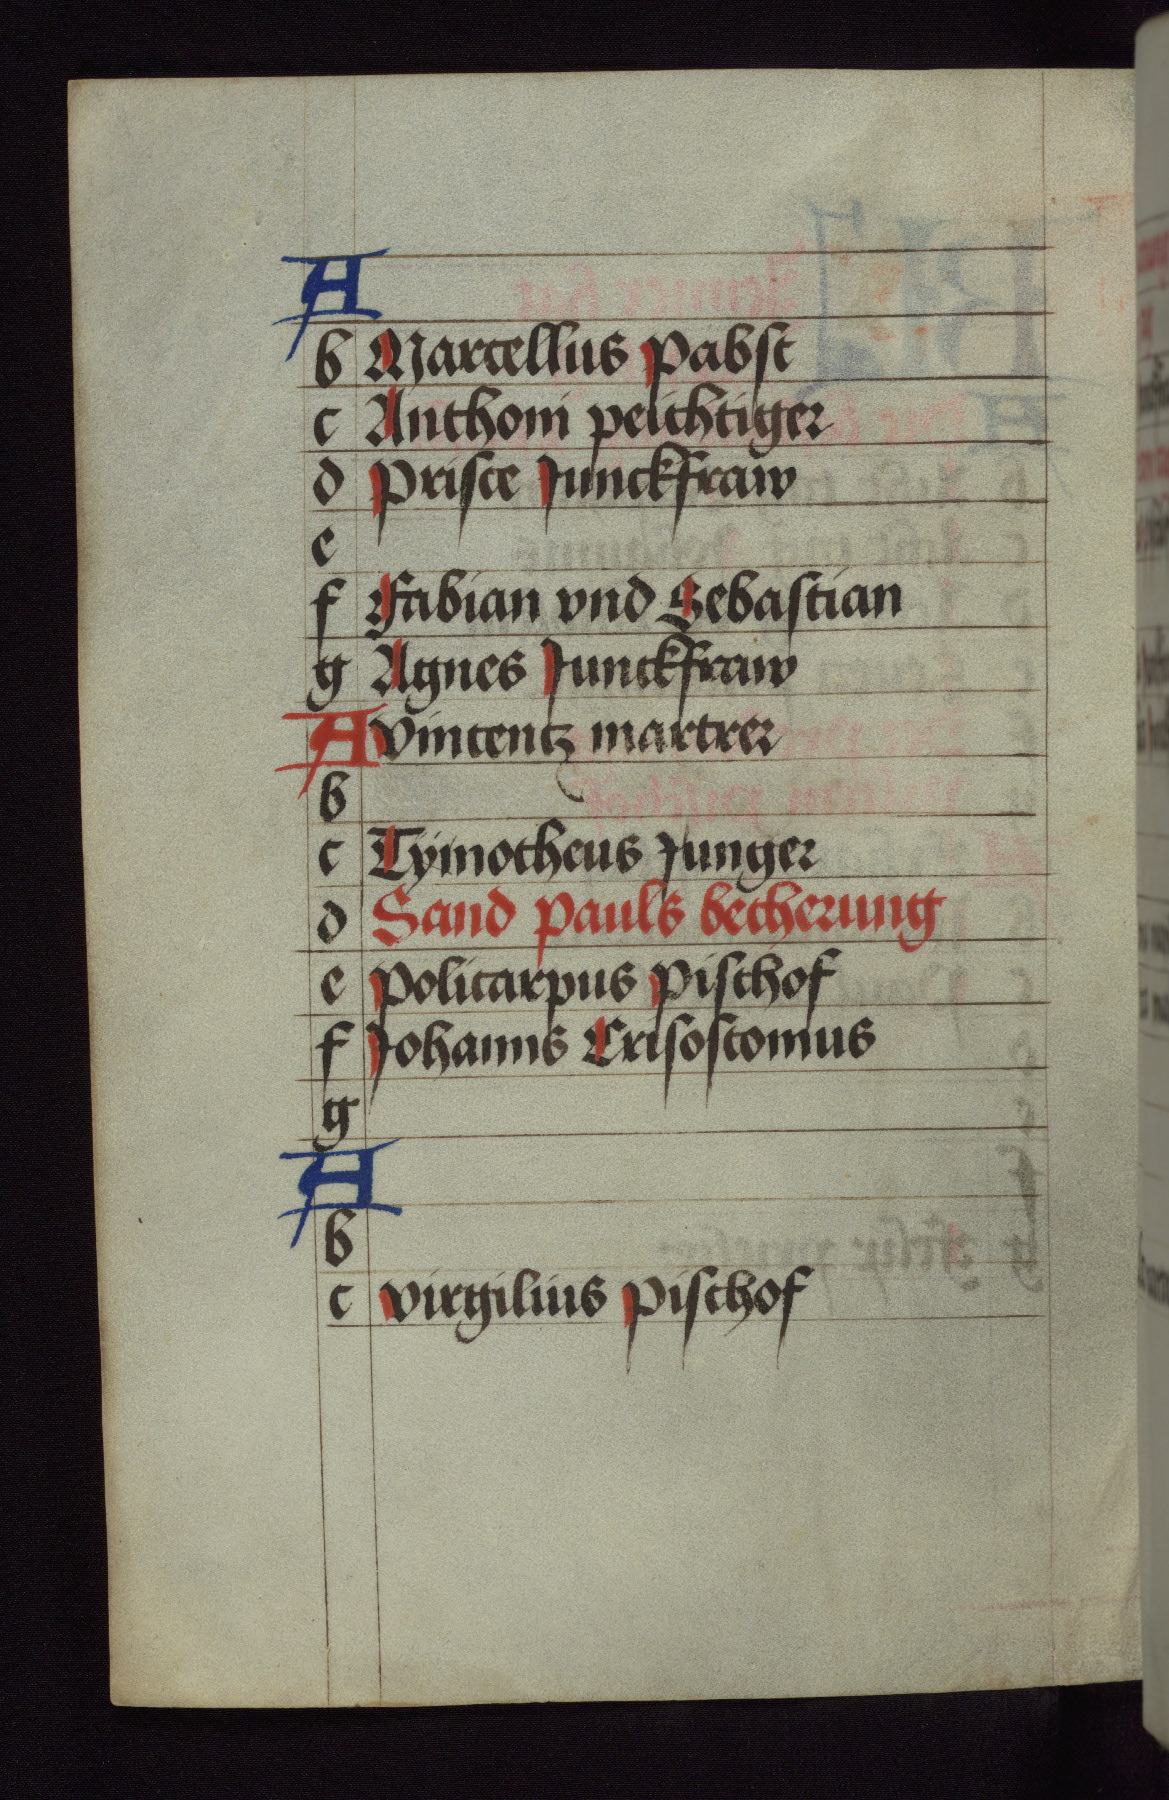 A
b Marcellus pabst
c Anthoni peichtiger
d Prisce Junckfraw
e
f Fabian vnd Sebastian
g Agnes Junckfraw
A Vincentz martrer
b
c Tymotheus Junger
d Sand pauls becherung
e Policarpus pischof
f Johanns Crisostomus
g
A
b
c Virgilius pischof